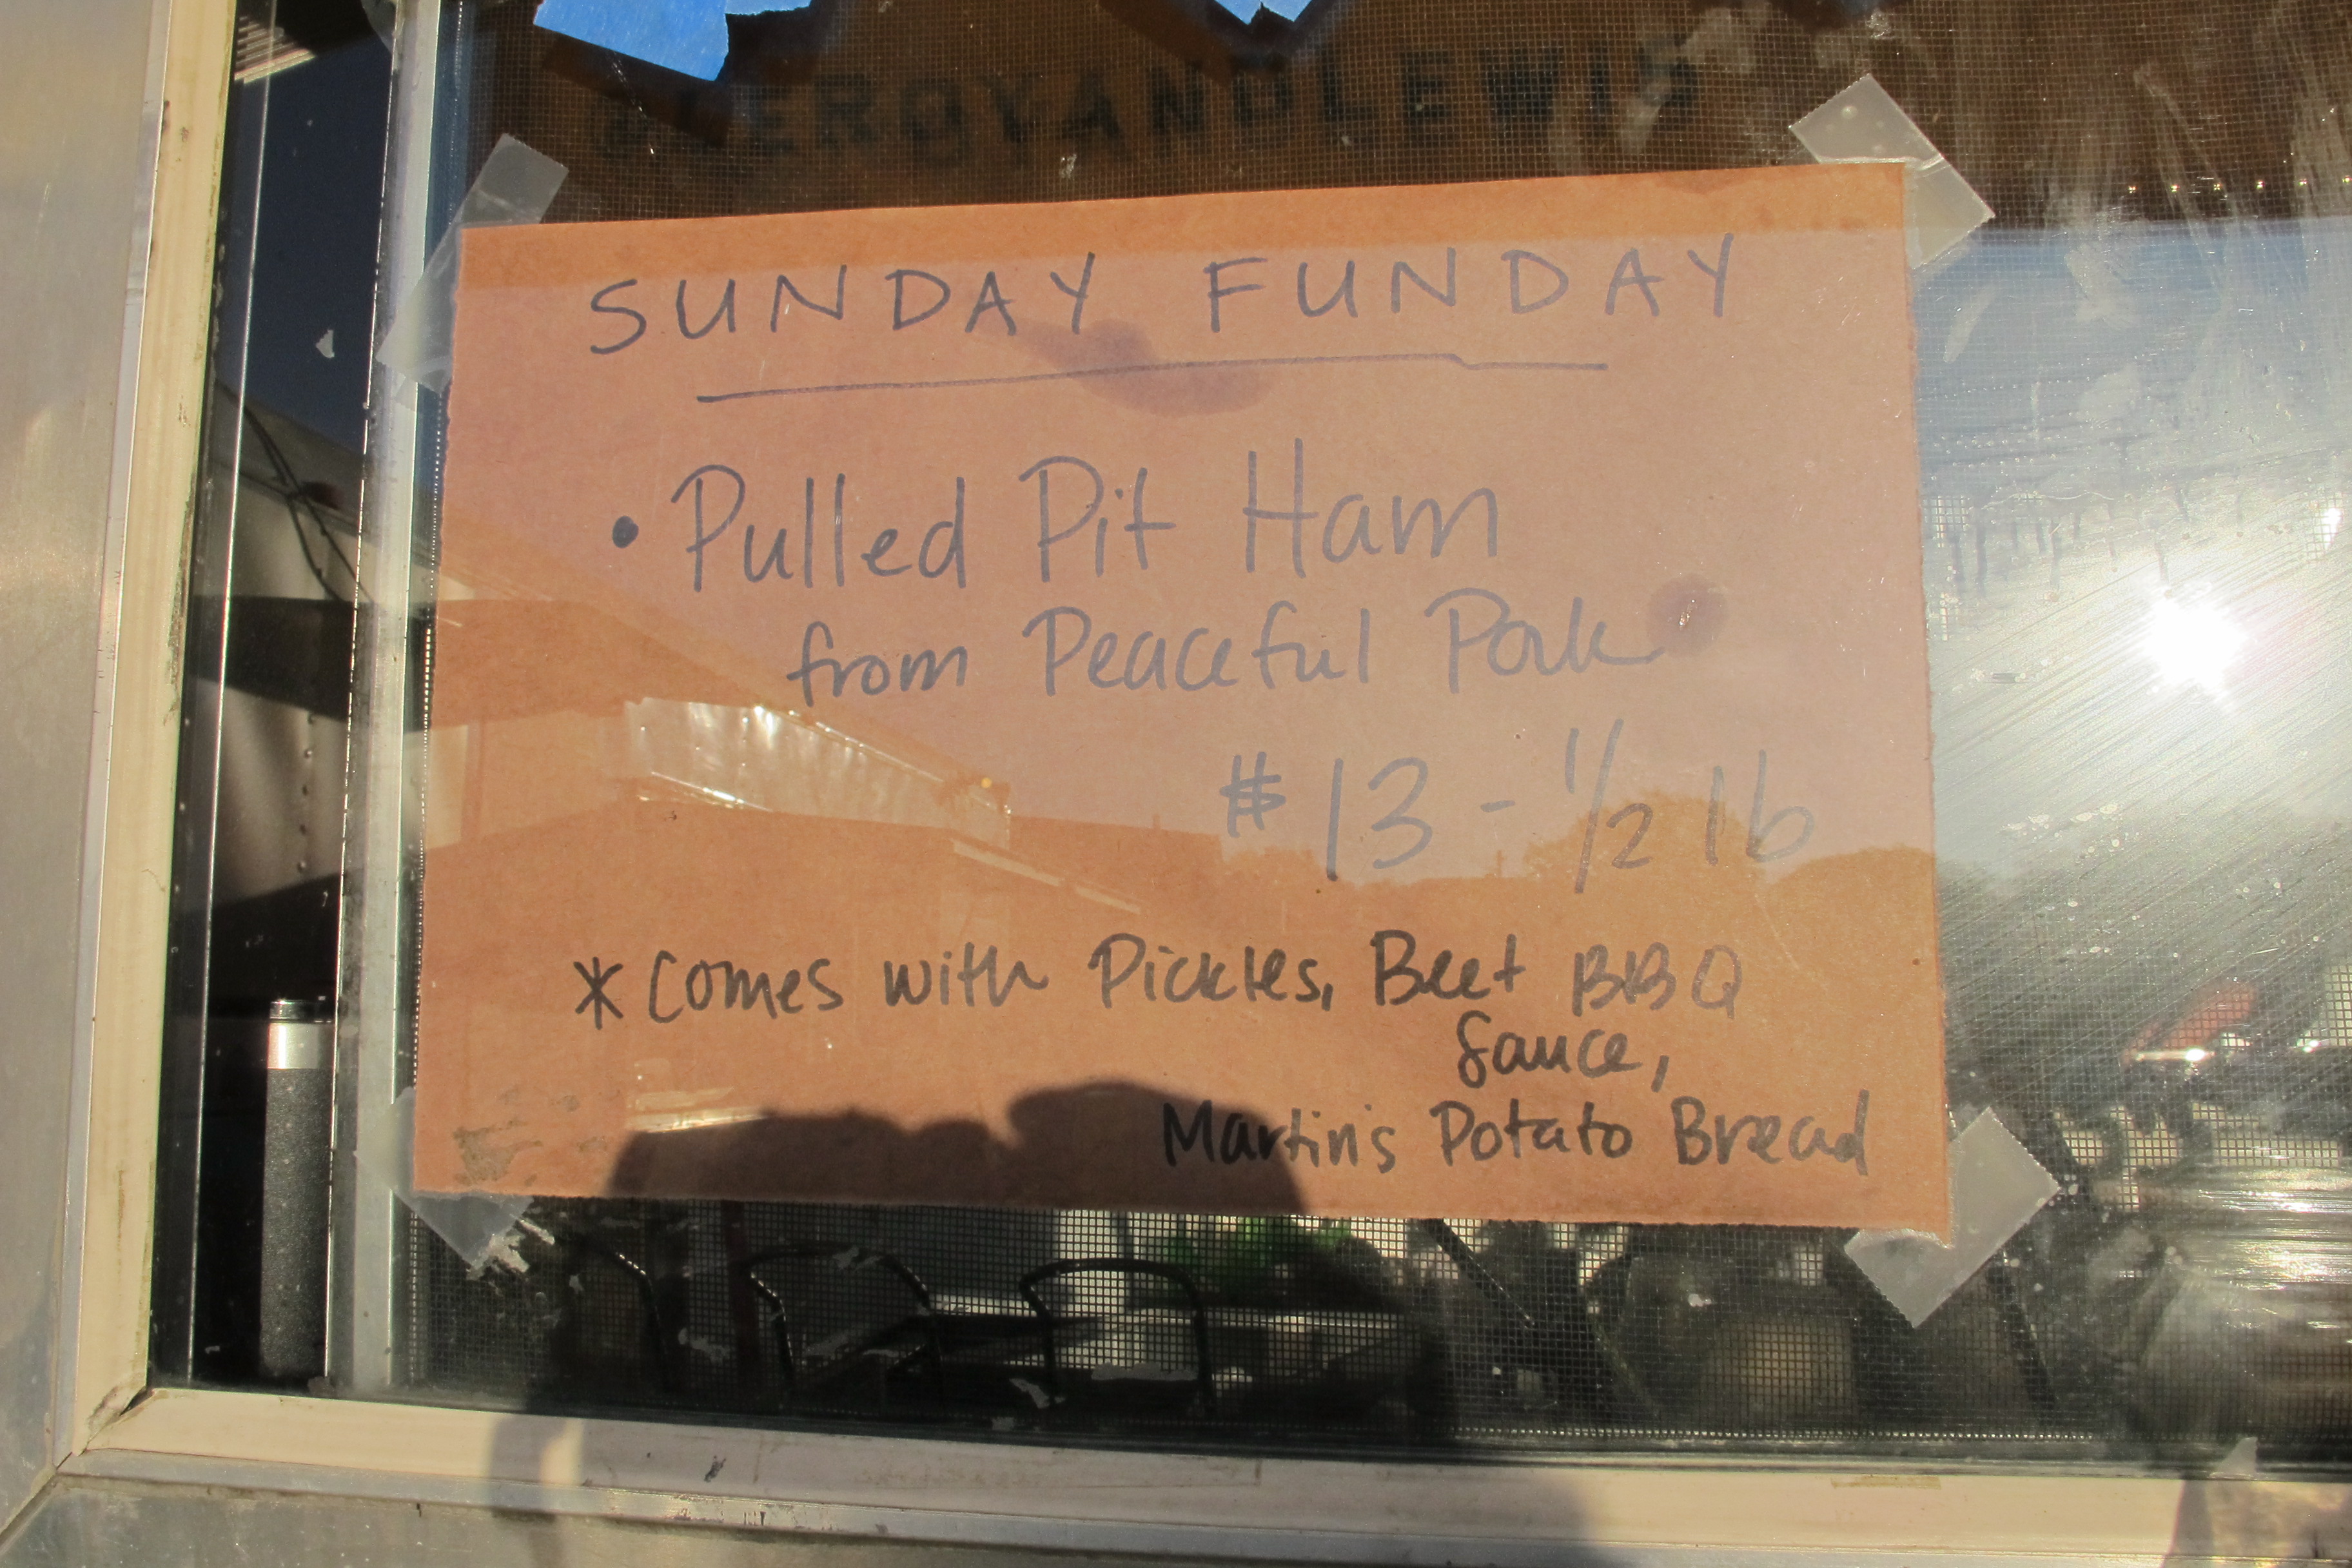 LEROYANDLEWIS
SUNDAY FUNDAY
• Pulled Pit Ham
from Peaceful Pork
$13 - 1/2 lb
* Comes with Pickles, Beet BBQ
Sauce,
Martin's Potato Bread